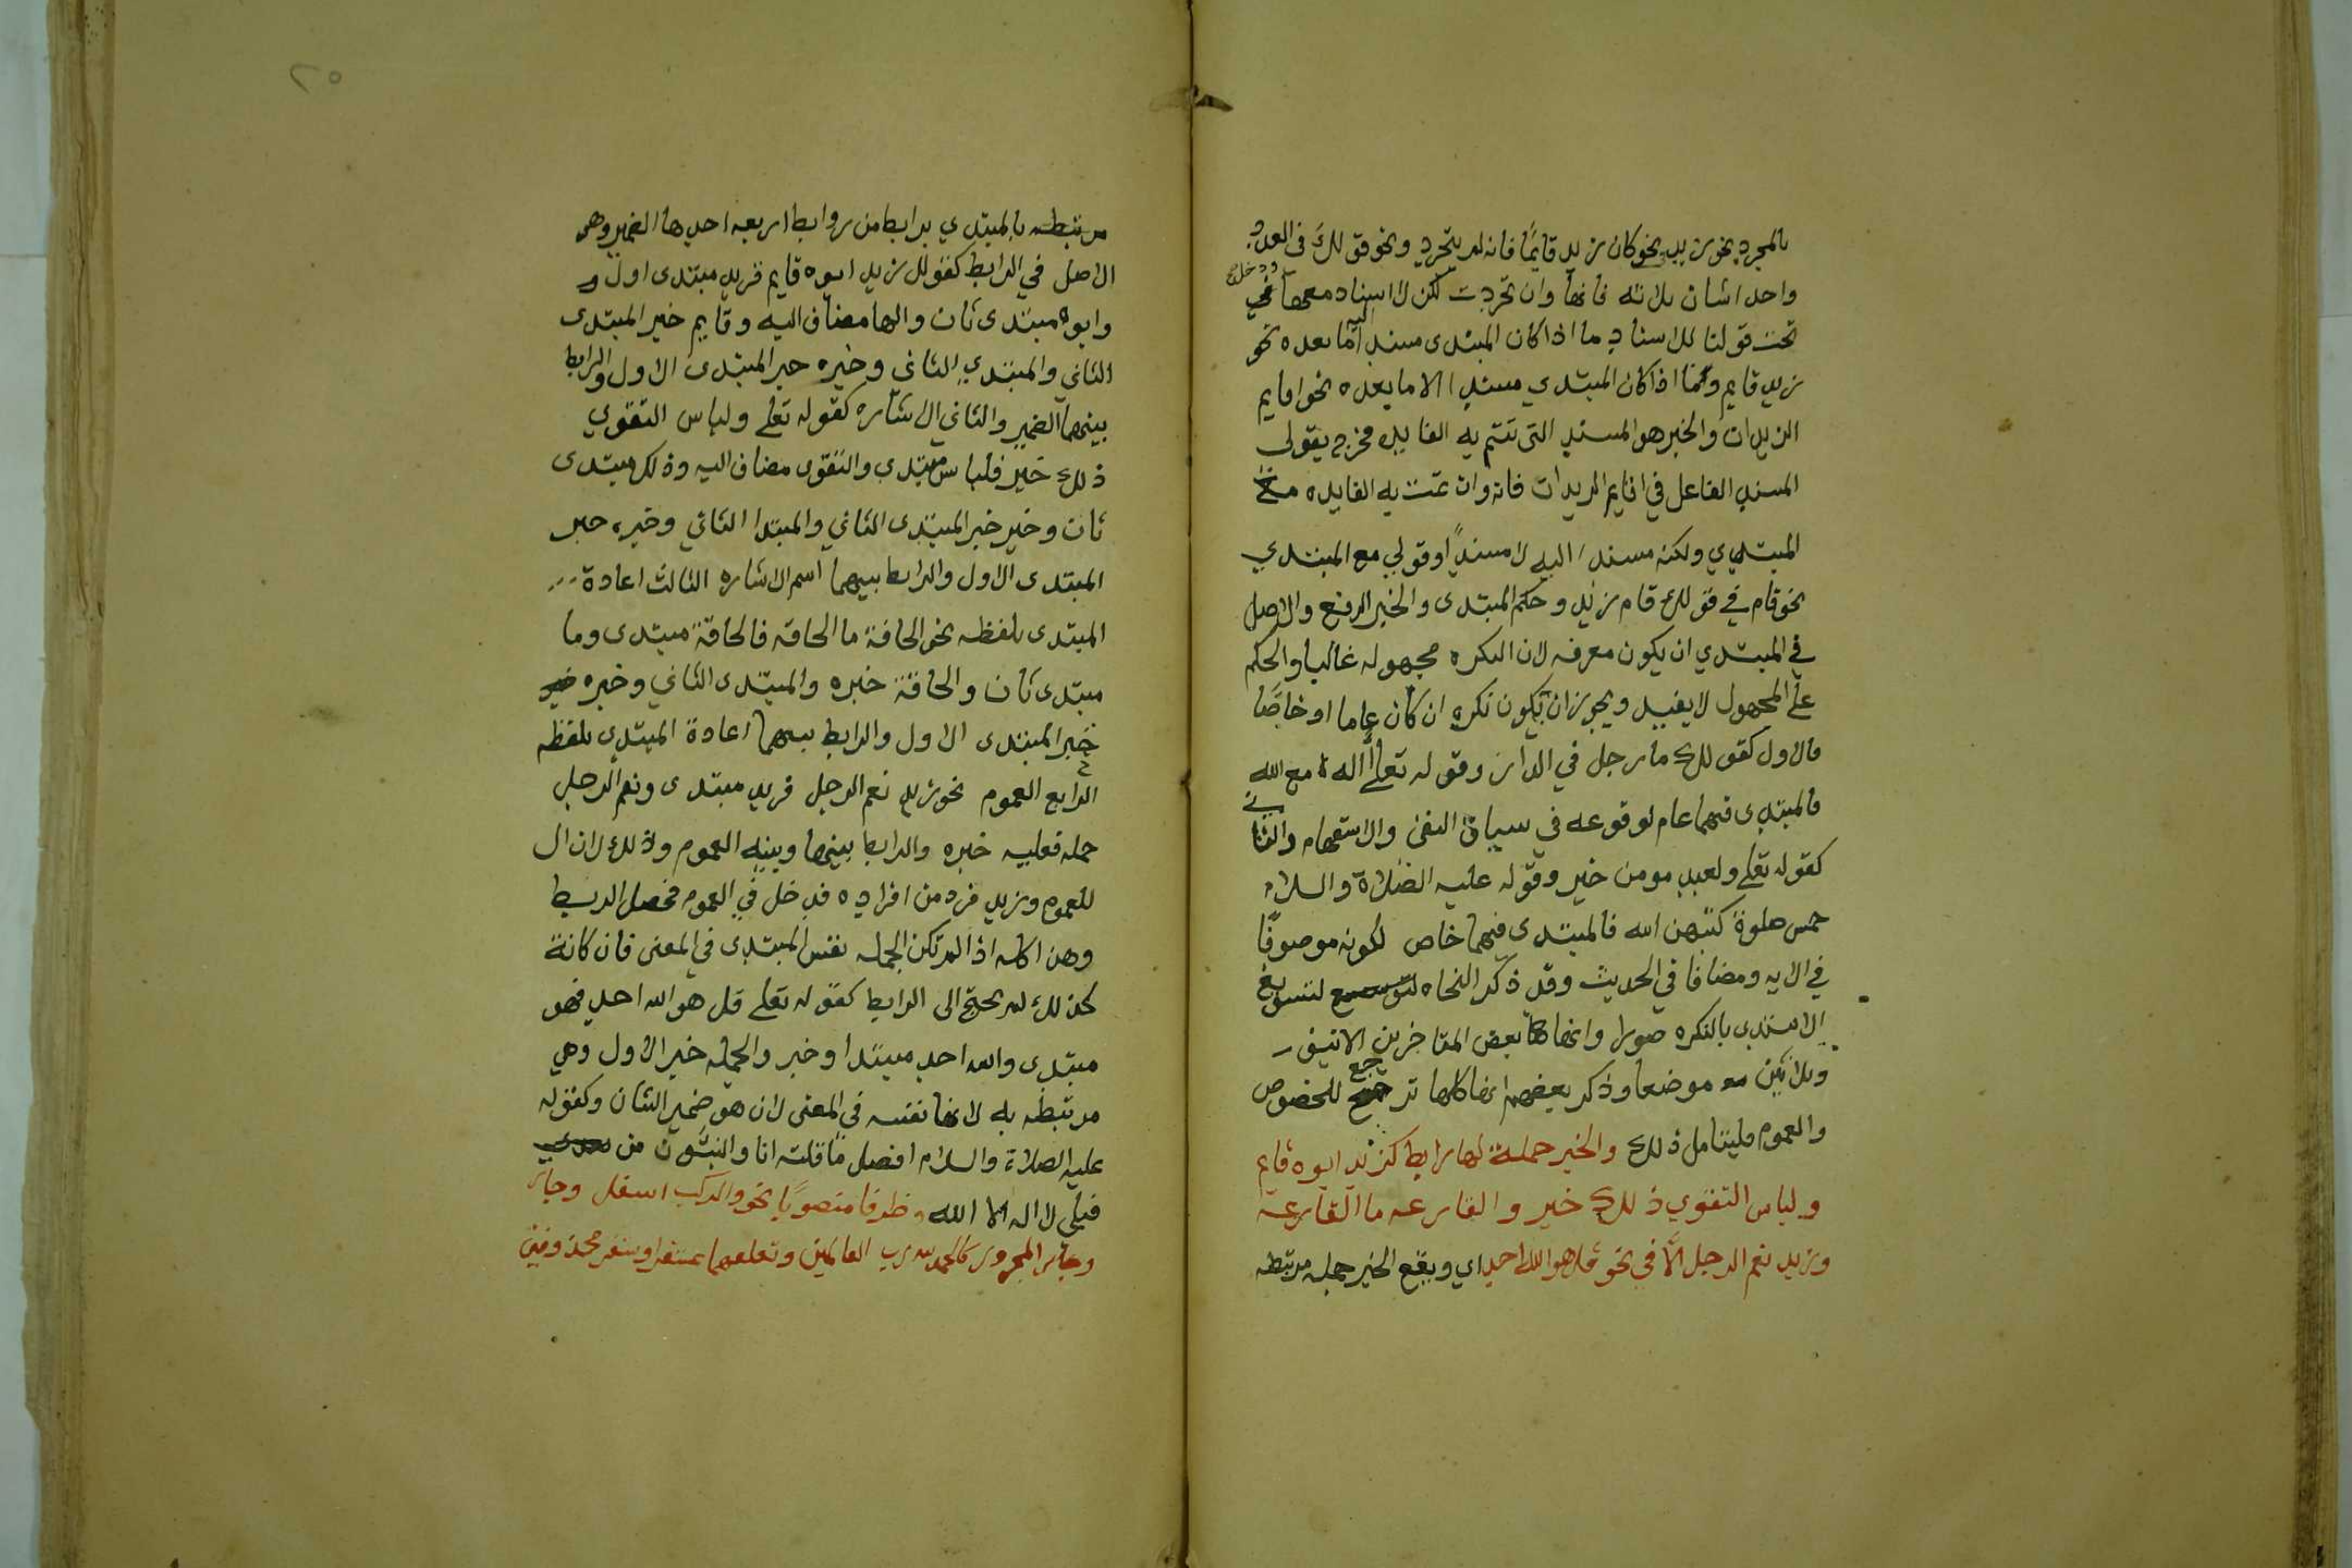 بالمجرد نحو زيد نحو كان زيد قايمًا فانه لم يتجرد ونحو قولك في العدد
واحد اثنان ثلاثه فانها وان تجردت لكن لا اسناد معها ودخل
تحت قولنا للاسناد ما اذا كان المبتدى مسند اليه ما بعده نحو
زيد قايم وما اذا كان المبتدي مسندا الا ما بعده نحو اقايم
الزيدان والخبر هو المسند التي تتم به الفايده فخرج بقولي
المسند الفاعل في اقايم الزيدان فانه وان تمت به الفايده مع
المبتدي ولكنه مسند اليه لا مسندٌ او قولي مع المبتدي
نحو قام في قولك قام زيد وحكم المبتدى والخبر الرفع والاصل
في المبتدي ان يكون معرفه لان النكره مجهوله غالبا والحكم
على المجهول لا يفيد ويجوز ان يكون نكره ان كان عاما او خاصًا
فالاول كقولك ما رجل في الدار وقوله تعلى أاله مع الله
فالمبتدى فيهما عام لوقوعه في سياق النفي والاستفهام والثاني
كقوله تعلى ولعبد مومن خير وقوله عليه الصلاة والسلام
خمس صلوة كتبهن الله فالمبتدى فيهما خاص لكونه موصوفًا
في الايه ومضافا في الحديث وقد ذكر النحاه لتسويغ
الابتدى بالنكره صورا وانهاها بعض المتاخرين الا نيف
وثلاثين موضعا وذكر بعضهم انها كلها ترجع للخصوص
والعموم فليتامل ذلك والخبر جملة لها رابط كزيد ابوه قايم
ولباس التقوي ذلك خير والقارعه ما القارعه
وزيد نعم الرجل الَّا في نحو قل هو الله احد اي ويقع الخبر جمله مرتبطه
٢٥
مرتبطه بالمبتدي برابط من روابط اربعه احدها الضمير وهو
الاصل في الرابط كقولك زيد ابوه قايم فزيد مبتدى اول و
وابوه مبتدى ثان والها مضاف اليه وقايم خبر المبتدى
الثاني والمبتدي الثاني وخبره خبر المبتدى الاول والرابط
بينهما الضمير والثاني الاشاره كقوله تعلى ولباس التقوي
ذلك خير فلباس مبتدي والتقوى مضاف اليه وذلك مبتدى
ثان وخير خبر المبتدى الثاني والمبتدا الثاني وخبره خبر
المبتدى الاول والرابط بينهما اسم الاشاره الثالث اعادة
المبتدى بلفظه نحو الحاقة ما الحاقه فالحاقة مبتدى وما
مبتدى ثان والحاقة خبره والمبتدى الثاني وخبره
خبر المبتدى الاول والرابط بينهما اعادة المبتدي بلفظه
الرابع العموم نحو زيد نعم الرجل فزيد مبتدى ونعم الرجل
جمله فعليه خبره والرابط بينها وبينه العموم وذلك لان ال
للعموم وزيد فرد من افراده فدخل في العموم فحصل الربط
وهذا كله اذا لم تكن الجمله نفس المبتدى في المعنى فان كانة
كذلك لم يحتج الى الرابط كقوله تعلى قل هو الله احد فهو
مبتدى والله احد مبتدا وخبر والجمله خبر الاول وهي
مرتبطه به لانها نفسه في المعنى لان هو ضمير الشان وكقوله
عليه الصلاة والسلام افضل ما قلته انا والنبيُّون من
قبلي لا اله الا الله وظرفا منصوبًا نحو والركب اسفل وجار
وجار المجرور كالحمد لله رب العالمين وتعلقهما بمستقر او ستقر محذوفين